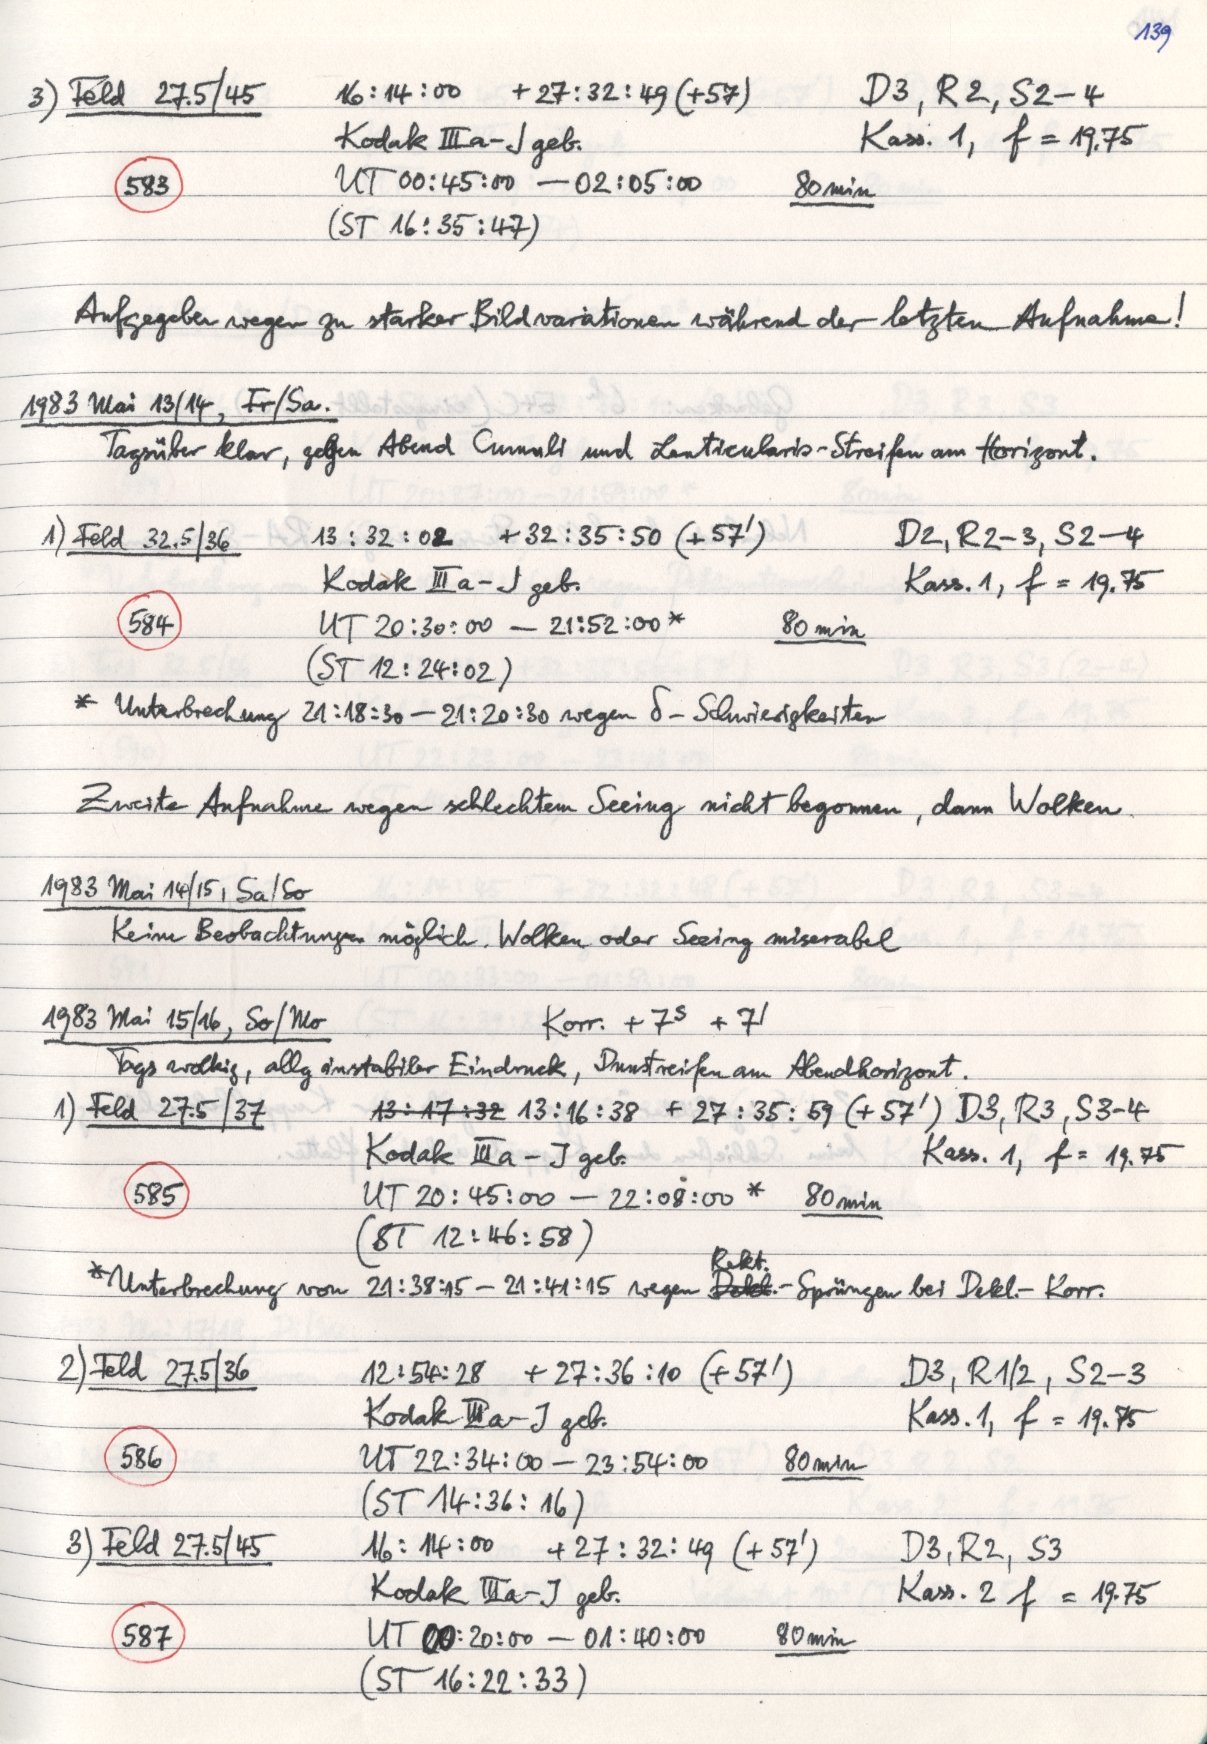 139
3) Feld 27.5/45 16:14:00 +27:32:49 (+57) D3, R2, S2-4
Kodak IIIa-J geb. Kass. 1, f = 19.75
583 UT 00:45:00 — 02:05:00 80 min
(ST 16:35:47)
Aufgegeben wegen zu starker Bildvariationen während der letzten Aufnahme!
1983 Mai 13/14, Fr/Sa.
Tagsüber klar, gegen Abend Cumuli und Lenticularis-Streifen am Horizont.
1) Feld 32.5/36 13:32:02 +32:35:50 (+57') D2, R2-3, S2-4
Kodak IIIa-J geb. Kass. 1, f = 19.75
584 UT 20:30:00 — 21:52:00* 80 min
(ST 12:24:02)
* Unterbrechung 21:18:30 — 21:20:30 wegen δ-Schwierigkeiten
Zweite Aufnahme wegen schlechtem Seeing nicht begonnen, dann Wolken.
1983 Mai 14/15, Sa/So
Keine Beobachtungen möglich. Wolken oder Seeing miserabel
1983 Mai 15/16, So/Mo Korr. +7s +7'
Tags wolkig, allg instabiler Eindruck, Dunstreifen am Abendhorizont.
1) Feld 27.5/37 13:17:32 13:16:38 +27:35:59 (+57') D3, R3, S3-4
Kodak IIIa-J geb. Kass. 1, f = 19.75
585 UT 20:45:00 — 22:08:00 * 80 min
(ST 12:46:58)
Rekt.
*Unterbrechung von 21:38:15 — 21:41:15 wegen Dekl.-Sprüngen bei Dekl.-Korr.
2) Feld 27.5/36 12:54:28 +27:36:10 (+57') D3, R1/2, S2-3
Kodak IIIa-J geb. Kass. 1, f = 19.75
586 UT 22:34:00 — 23:54:00 80 min
(ST 14:36:16)
3) Feld 27.5/45 16:14:00 +27:32:49 (+57') D3, R2, S3
Kodak IIIa-J geb. Kass. 2 f = 19.75
587 UT 00:20:00 — 01:40:00 80 min
(ST 16:22:33)